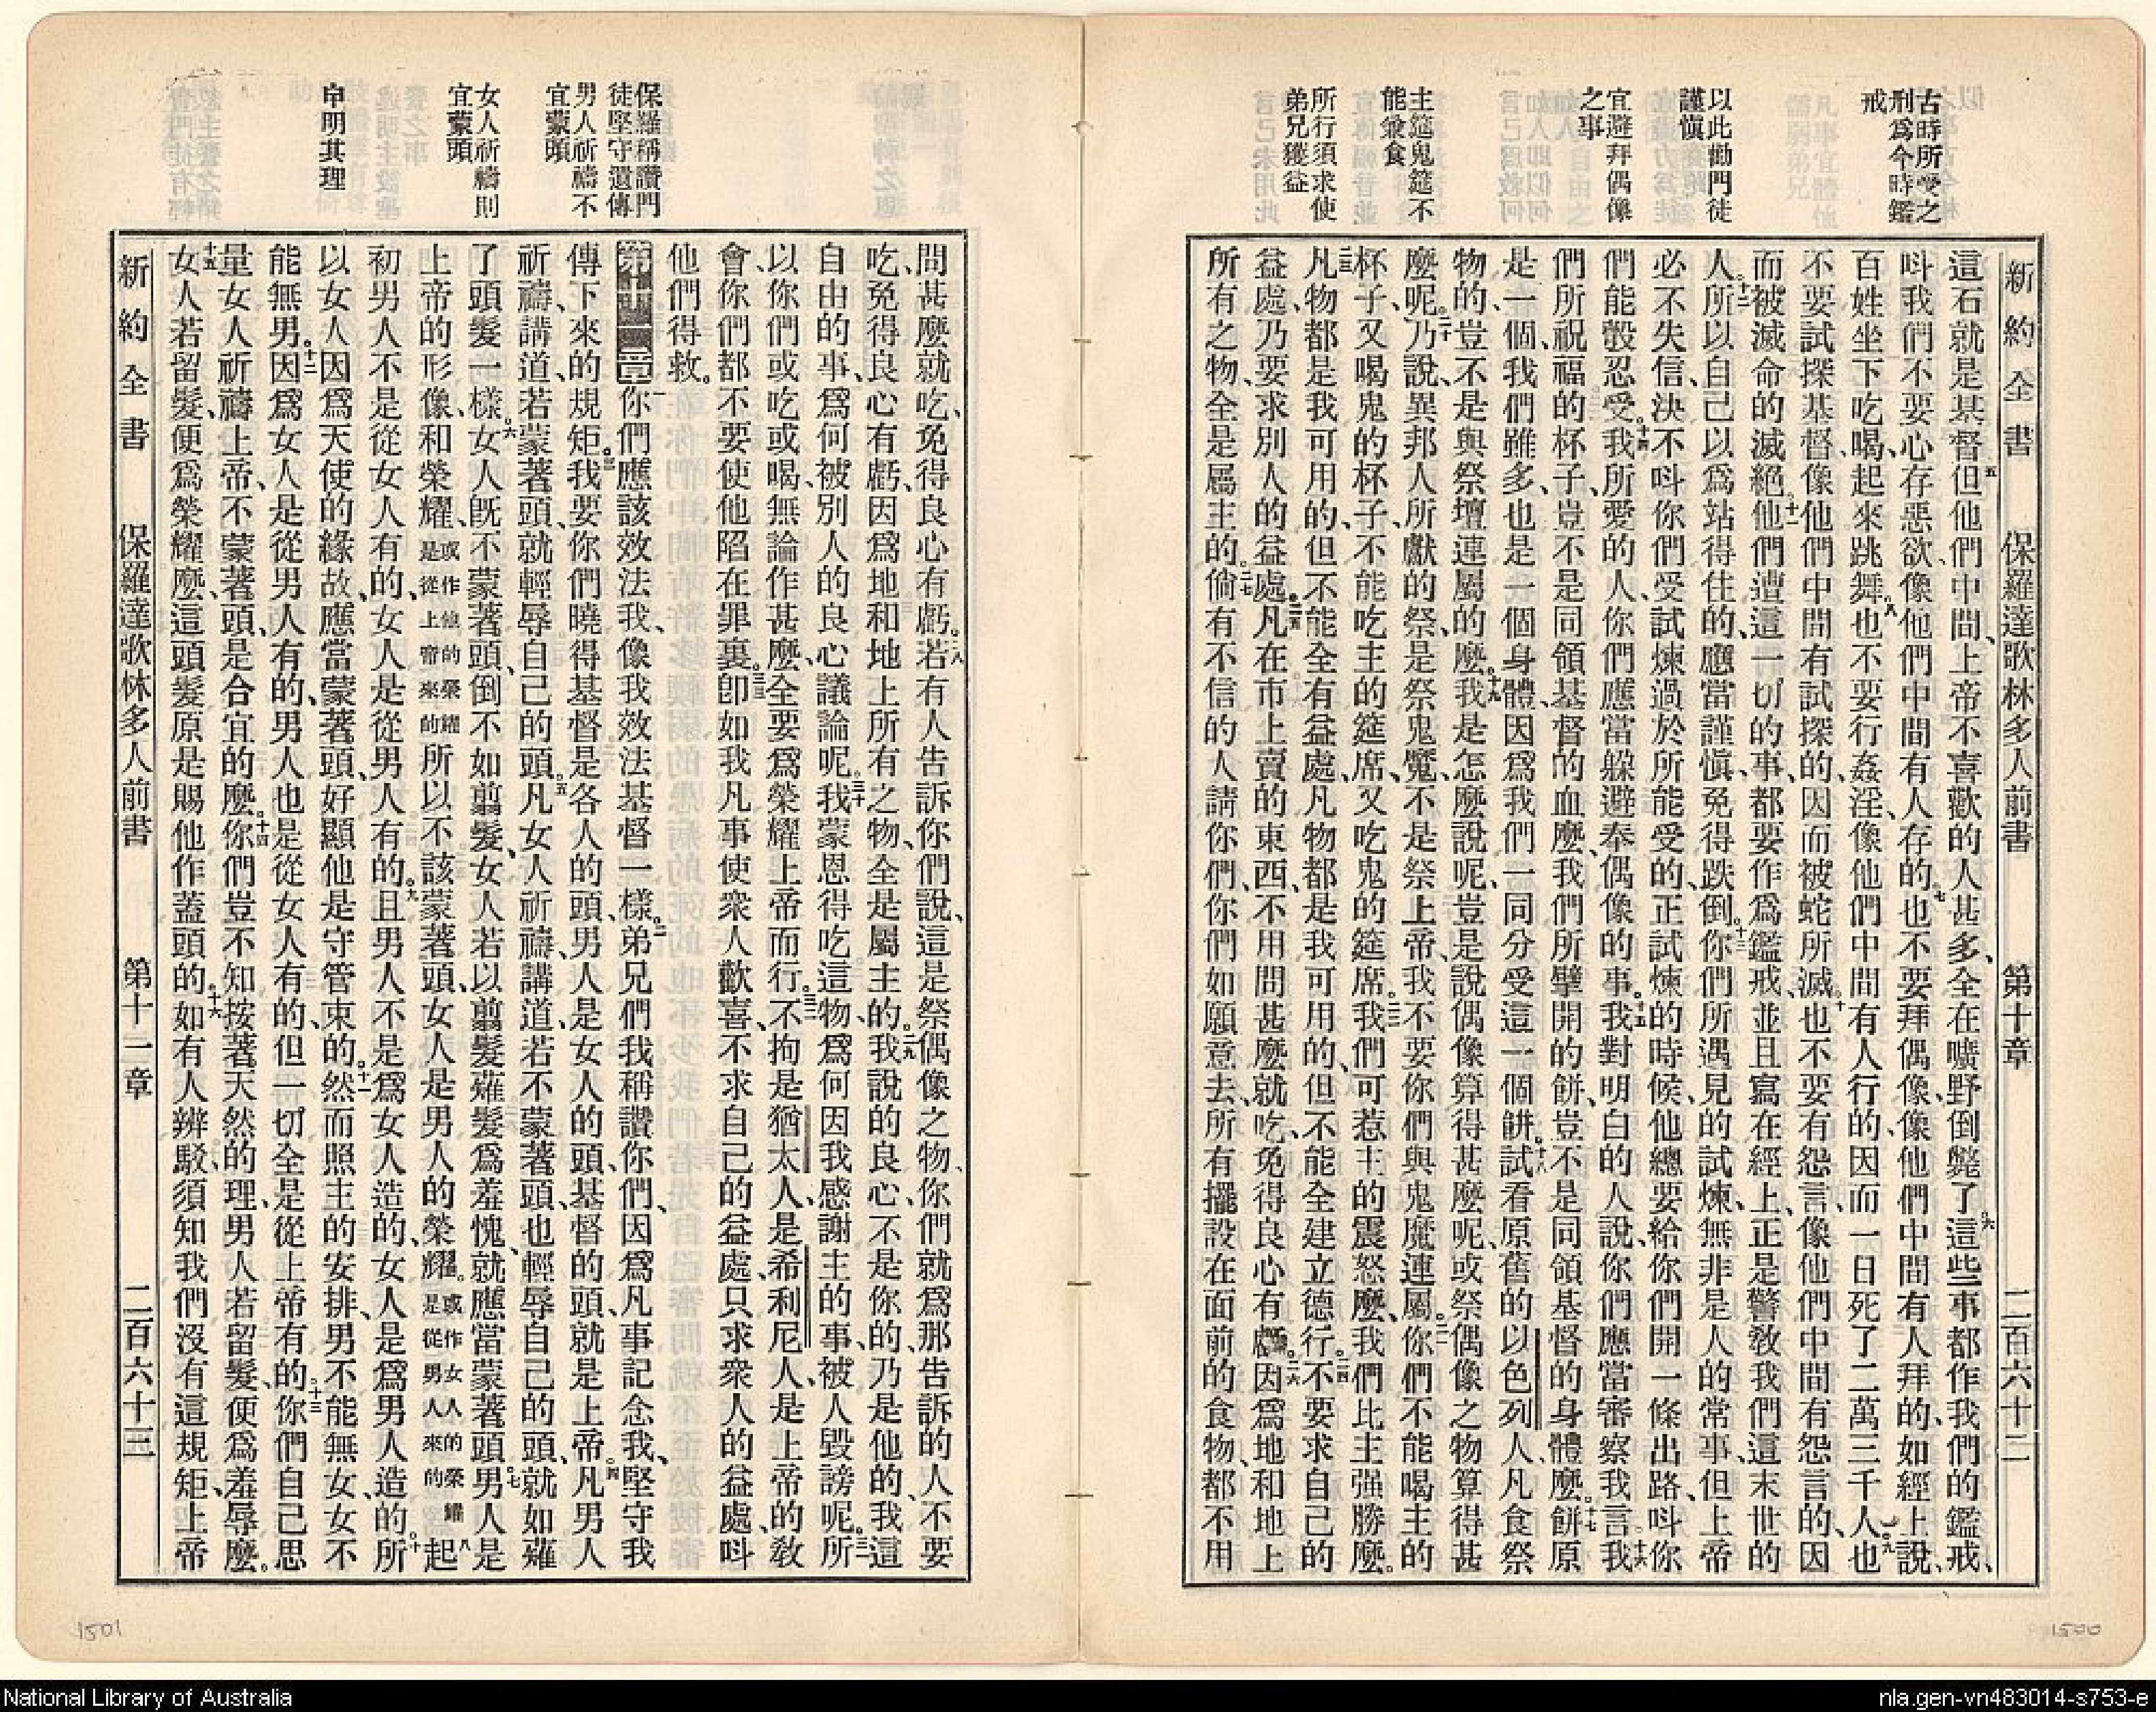 古時所受之
刑爲今時鑑
戒
以此勸門徒
謹愼
宜避拜偶像
之事
主筵鬼筵不
能兼食
所行須求使
弟兄獲益
新約全書 保羅達歌林多人前書 第十章 二百六十二
這石就是基督五但他們中間、上帝不喜歡的人甚多、全在曠野倒斃了。六這些事都作我們的鑑戒、
呌我們不要心存惡欲、像他們中間有人存的。七也不要拜偶像、像他們中間有人拜的、如經上說、
百姓坐下吃喝、起來跳舞。八也不要行姦淫、像他們中間有人行的、因而一日死了二萬三千人。九也
不要試探基督、像他們中間有試探的、因而被蛇所滅。十也不要有怨言、像他們中間有怨言的、因
而被滅命的滅絕。十一他們遭這一切的事、都要作爲鑑戒、並且寫在經上、正是警敎我們這末世的
人。十二所以自己以爲站得住的、應當謹愼、免得跌倒。十三你們所遇見的試煉、無非是人的常事、但上帝
必不失信、決不呌你們受試煉過於所能受的、正試煉的時候、他總要給你們開一條出路、呌你
們能彀忍受。十四我所愛的人、你們應當躲避奉偶像的事。十五我對明白的人說、你們應當審察我言。十六我
們所祝福的杯子、豈不是同領基督的血麼、我們所擘開的餅、豈不是同領基督的身體麼。十七餅原
是一個、我們雖多、也是一個身體、因爲我們一同分受這一個餅。十八試看原舊的以色列人、凡食祭
物的、豈不是與祭壇連屬的麼。十九我是怎麼說呢、豈是說偶像算得甚麼呢、或祭偶像之物算得甚
麼呢。二十乃說異邦人所獻的祭、是祭鬼魔、不是祭上帝、我不要你們與鬼魔連屬。二一你們不能喝主的
杯子、又喝鬼的杯子、不能吃主的筵席、又吃鬼的筵席。二二我們可惹主的震怒麼、我們比主强勝麼。
二三凡物都是我可用的、但不能全有益處、凡物都是我可用的、但不能全建立德行。二四不要求自己的
益處、乃要求別人的益處。二五凡在市上賣的東西、不用問甚麼就吃、免得良心有虧。二六因爲地和地上
所有之物、全是屬主的。二七倘有不信的人請你們、你們如願意去、所有擺設在面前的食物、都不用
1500
保羅稱讚門
徒堅守遺傳
男人祈禱不
宜蒙頭
女人祈禱則
宜蒙頭
申明其理
問甚麼就吃、免得良心有虧。二八若有人吿訴你們說、這是祭偶像之物、你們就爲那吿訴的人不要
吃、免得良心有虧、因爲地和地上所有之物、全是屬主的。二九我說的良心、不是你的、乃是他的、我這
自由的事、爲何被別人的良心議論呢。三十我蒙恩得吃這物、爲何因我感謝主的事、被人毀謗呢。三一所
以你們或吃或喝、無論作甚麼、全要爲榮耀上帝而行。三二不拘是猶太人、是希利尼人、是上帝的敎
會、你們都不要使他陷在罪裏。三三卽如我凡事使衆人歡喜、不求自己的益處、只求衆人的益處、呌
他們得救。
第十一章一你們應該效法我、像我效法基督一樣。二弟兄們我稱讚你們、因爲凡事記念我、堅守我
傳下來的規矩。三我要你們曉得基督是各人的頭、男人是女人的頭、基督的頭、就是上帝。四凡男人
祈禱講道、若蒙著頭、就輕辱自己的頭。五凡女人祈禱講道、若不蒙著頭、也輕辱自己的頭、就如薙
了頭髮一樣。六女人旣不蒙著頭、倒不如翦髮、女人若以翦髮薙髮爲羞愧、就應當蒙著頭。七男人是
上帝的形像、和榮耀、或作他的榮耀是從上帝來的所以不該蒙著頭、女人是男人的榮耀。或作女人的榮耀是從男人來的八起
初男人不是從女人有的、女人是從男人有的。九且男人不是爲女人造的、女人是爲男人造的。十所
以女人因爲天使的緣故、應當蒙著頭、好顯他是守管束的。十一然而照主的安排、男不能無女、女不
能無男。十二因爲女人是從男人有的、男人也是從女人有的、但一切全是從上帝有的。十三你們自己思
量、女人祈禱上帝、不蒙著頭、是合宜的麼。十四你們豈不知按著天然的理、男人若留髮、便爲羞辱麼。
十五女人若留髮、便爲榮耀麼、這頭髮原是賜他作蓋頭的。十六如有人辨駁、須知我們沒有這規矩、上帝
新約全書 保羅達歌林多人前書 第十一章 二百六十三
1501
National Library of Australia
nla.gen-vn483014-s753-e